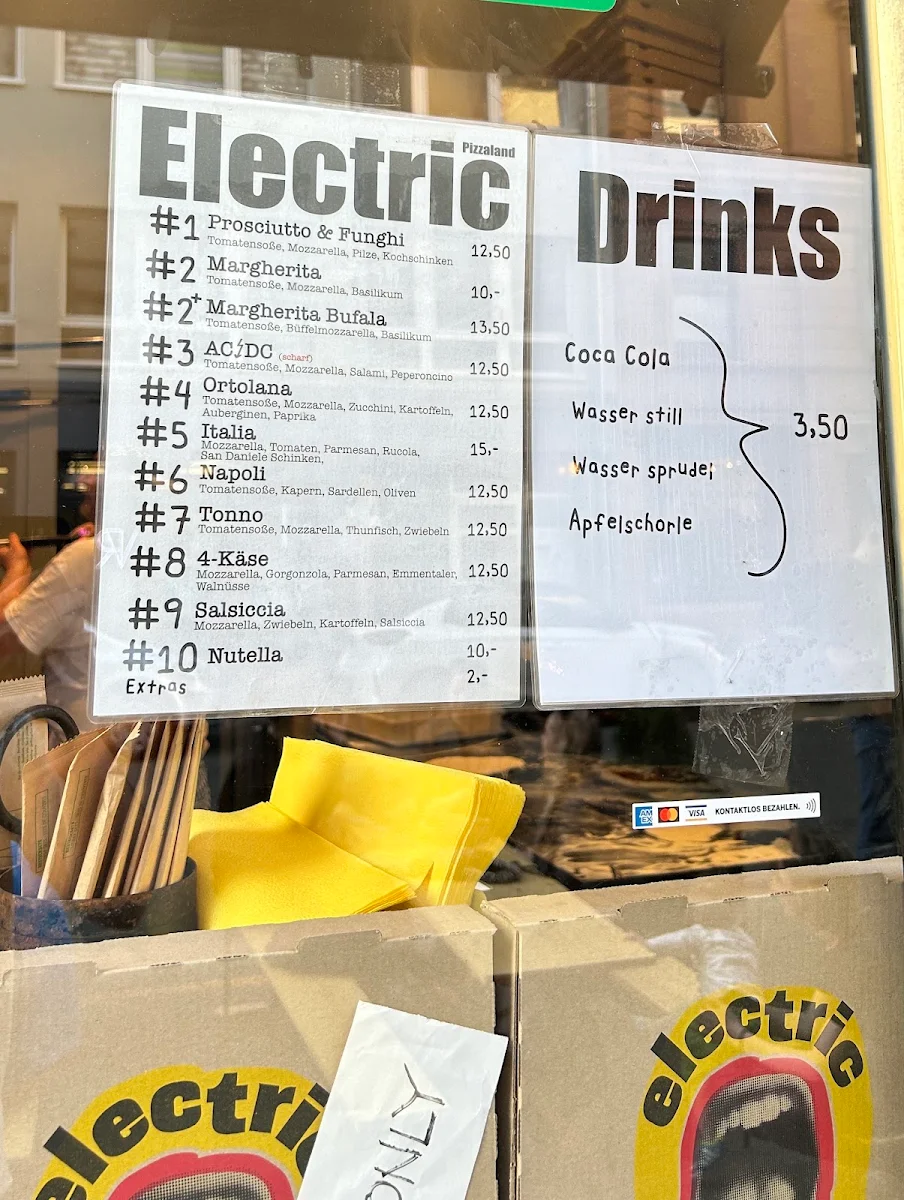 Electric
Pizzaland
#1 Prosciutto & Funghi
Tomatensoße, Mozzarella, Pilze, Kochschinken 12,50
#2 Margherita
Tomatensoße, Mozzarella, Basilikum 10,-
#2+ Margherita Bufala
Tomatensoße, Büffelmozzarella, Basilikum 13,50
#3 AC/DC (scharf)
Tomatensoße, Mozzarella, Salami, Peperoncino 12,50
#4 Ortolana
Tomatensoße, Mozzarella, Zucchini, Kartoffeln, 12,50
Auberginen, Paprika
#5 Italia
Mozzarella, Tomaten, Parmesan, Rucola, 15,-
San Daniele Schinken,
#6 Napoli
Tomatensoße, Kapern, Sardellen, Oliven 12,50
#7 Tonno
Tomatensoße, Mozzarella, Thunfisch, Zwiebeln 12,50
#8 4-Käse
Mozzarella, Gorgonzola, Parmesan, Emmentaler, 12,50
Walnüsse
#9 Salsiccia
Mozzarella, Zwiebeln, Kartoffeln, Salsiccia 12,50
#10 Nutella 10,-
Extras 2,-
Drinks
Coca Cola
Wasser still
3,50
Wasser sprudel
Apfelschorle
AM EX VISA KONTAKTLOS BEZAHLEN.
electric
electric
ONLY